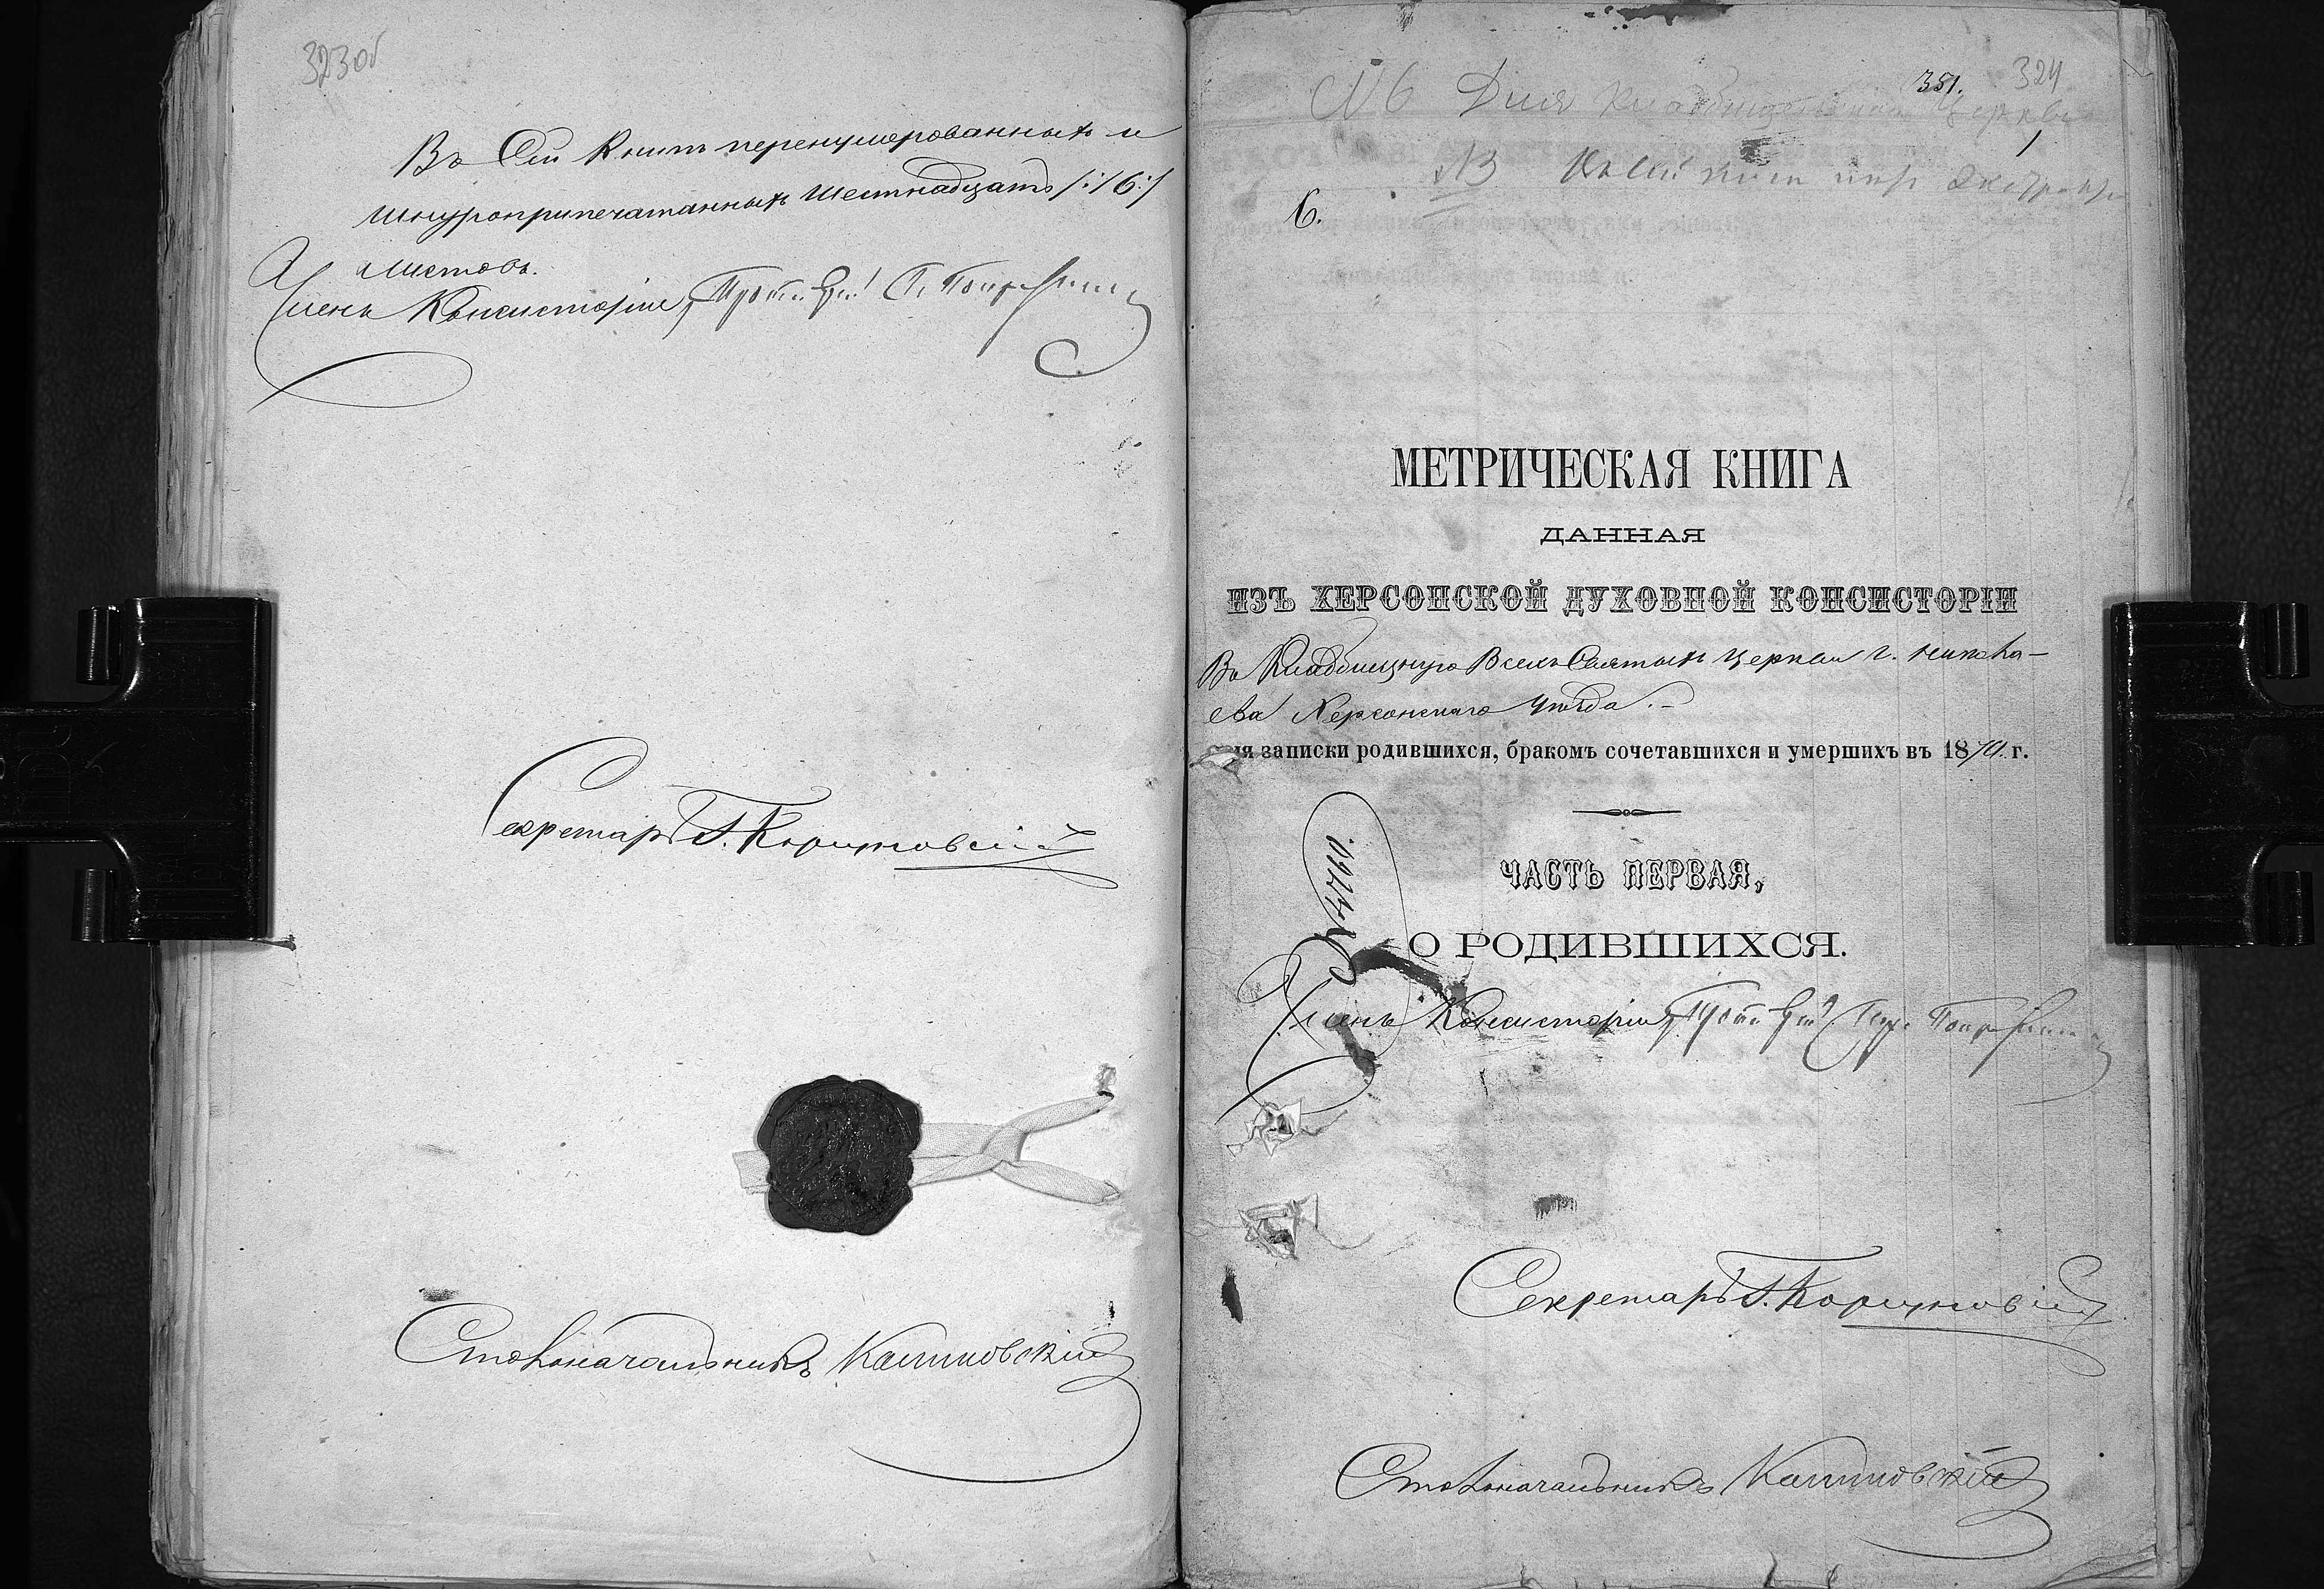 323об
Въ Сей Книгѣ перенумерованныхъ и
шнуроприпечатанныхъ шестнадцать /:16:/
листовъ.
Членъ Консисторіи, Протоіерей
Секретарь Г.
Столоначальникъ Калиновскій
351. 324
N 6 Для Кладбищенской Церкви
1
N3 Къ сей
6.
МЕТРИЧЕСКАЯ КНИГА
ДАННАЯ
ИЗЪ ХЕРСОНСКОЙ ДУХОВНОЙ КОНСИСТОРІИ
Въ Кладбищную Всехъ Святыхъ церковь г. Никола-
ева Херсонскаго уѣзда.-
для записки родившихся, бракомъ сочетавшихся и умершихъ въ 1870. г.
ЧАСТЬ ПЕРВАЯ,
О РОДИВШИХСЯ.
Членъ Консисторіи, Протоіерей
Секретарь Г.
Столоначальникъ Калиновскій